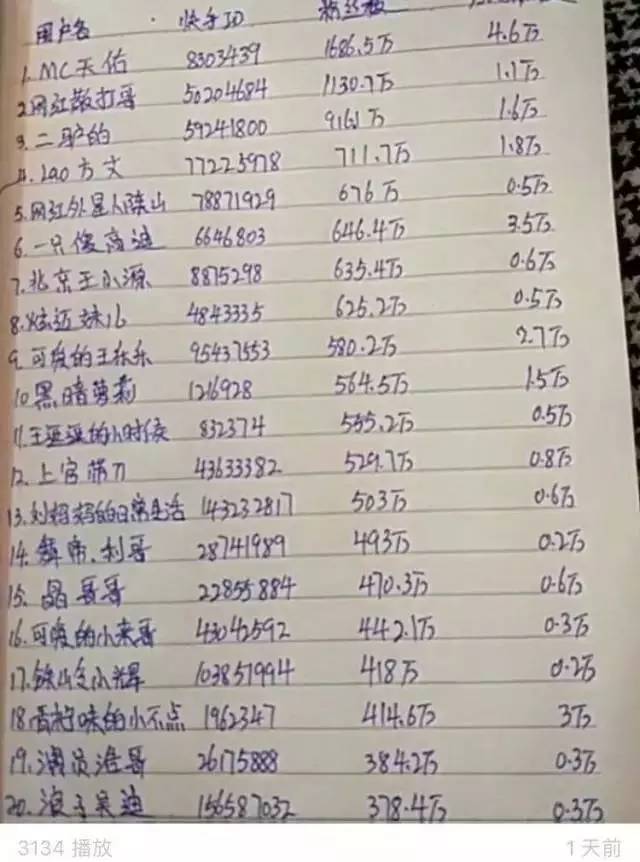 用户名 快手ID 粉丝数
1. MC天佑 8303439 1686.5万 4.6万
2. 网红散打哥 50204684 1130.7万 1.1万
3. 二驴的 59241800 916.1万 1.6万
4. 方丈 77225978 711.7万 1.8万
5. 网红外星人陈山 78871929 676万 0.5万
6. 一只傻高迪 6646803 646.4万 3.5万
7. 北京王小源 8875298 635.4万 0.6万
8. 炫迈妹儿 4843335 625.2万 0.5万
9. 可爱的王乐乐 95437553 580.2万 2.7万
10. 黑暗萝莉 1216928 564.5万 1.5万
11. 王逗逗的小时候 832374 555.2万 0.5万
12. 上官带刀 43633382 529.7万 0.8万
13. 刘妈妈的日常生活 143232817 503万 0.6万
14. 利哥 28741989 493万 0.2万
15. 晶哥哥 22855884 470.3万 0.6万
16. 可爱的小来哥 43042592 442.1万 0.3万
17. 铁山交小辉 103851994 418万 0.2万
18. 香柠味的小不点 1962347 414.6万 3万
19. 演员浩哥 26175888 384.2万 0.3万
20. 浪子吴迪 156587032 378.4万 0.3万
3134 播放 1天前